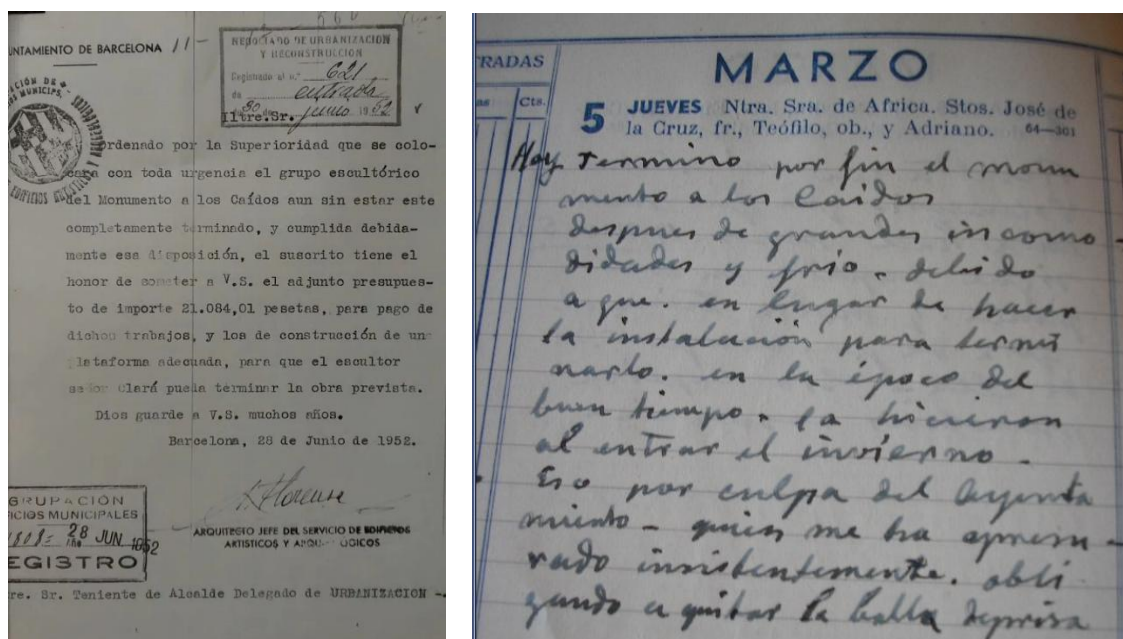 AYUNTAMIENTO DE BARCELONA 11-
NEGOCIADO DE URBANIZACION
Y RECONSTRUCCION
Registrado al n.º 621
de entrada
30 de junio 1952
Iltre. Sr.
Ordenado por la Superioridad que se colo-
cara con toda urgencia el grupo escultórico
del Monumento a los Caídos aun sin estar este
completamente terminado, y cumplida debida-
mente esa disposición, el suscrito tiene el
honor de someter a V.S. el adjunto presupues-
to de importe 21.084,01 pesetas, para pago de
dichos trabajos, y los de construcción de una
plataforma adecuada, para que el escultor
señor Clará pueda terminar la obra prevista.
Dios guarde a V.S. muchos años.
Barcelona, 28 de Junio de 1952.
ARQUITECTO JEFE DEL SERVICIO DE EDIFICIOS
ARTISTICOS Y ARQUEOLOGICOS
GRUPACIÓN
ICIOS MUNICIPALES
28 JUN 1952
EGISTRO
re. Sr. Teniente de Alcalde Delegado de URBANIZACION -
RADAS
Cts.
MARZO
5 JUEVES Ntra. Sra. de Africa. Stos. José de
la Cruz, fr., Teófilo, ob., y Adriano. 64—301
Hoy termino por fin el monu
mento a los Caidos
despues de grandes incomo-
didades y frio. debido
a que. en lugar de hacer
la instalación para termi
narlo. en la época del
buen tiempo. la hicieron
al entrar el invierno.
Eso por culpa del Ayunta
miento - quien me ha apresu-
rado insistentemente. obli
gando a quitar la balla deprisa